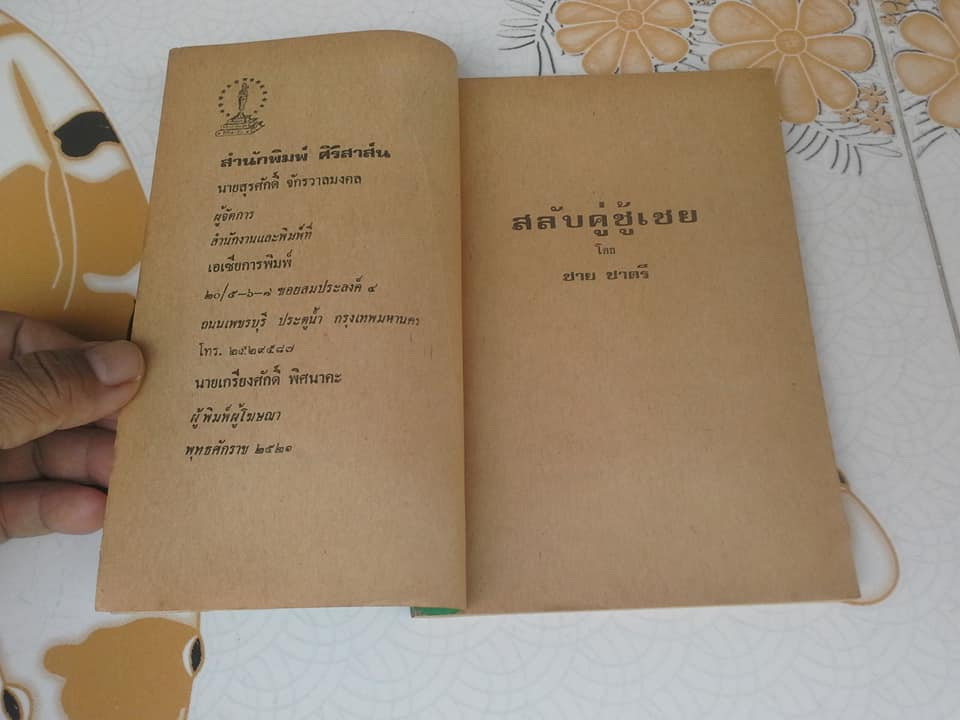 สำนักพิมพ์ ศิริสาส์น
นายสุรศักดิ์ จักรวาลมงคล
ผู้จัดการ
สำนักงานและพิมพ์ที่
เอเซียการพิมพ์
๒๐/๕–๖–๗ ซอยสมประสงค์ ๔
ถนนเพชรบุรี ประตูน้ำ กรุงเทพมหานคร
โทร. ๒๕๒๙๕๘๗
นายเกรียงศักดิ์ พิศนาคะ
ผู้พิมพ์ผู้โฆษณา
พุทธศักราช ๒๕๒๑
สลับคู่ชู้เชย
โดย
ชาย ชาตรี